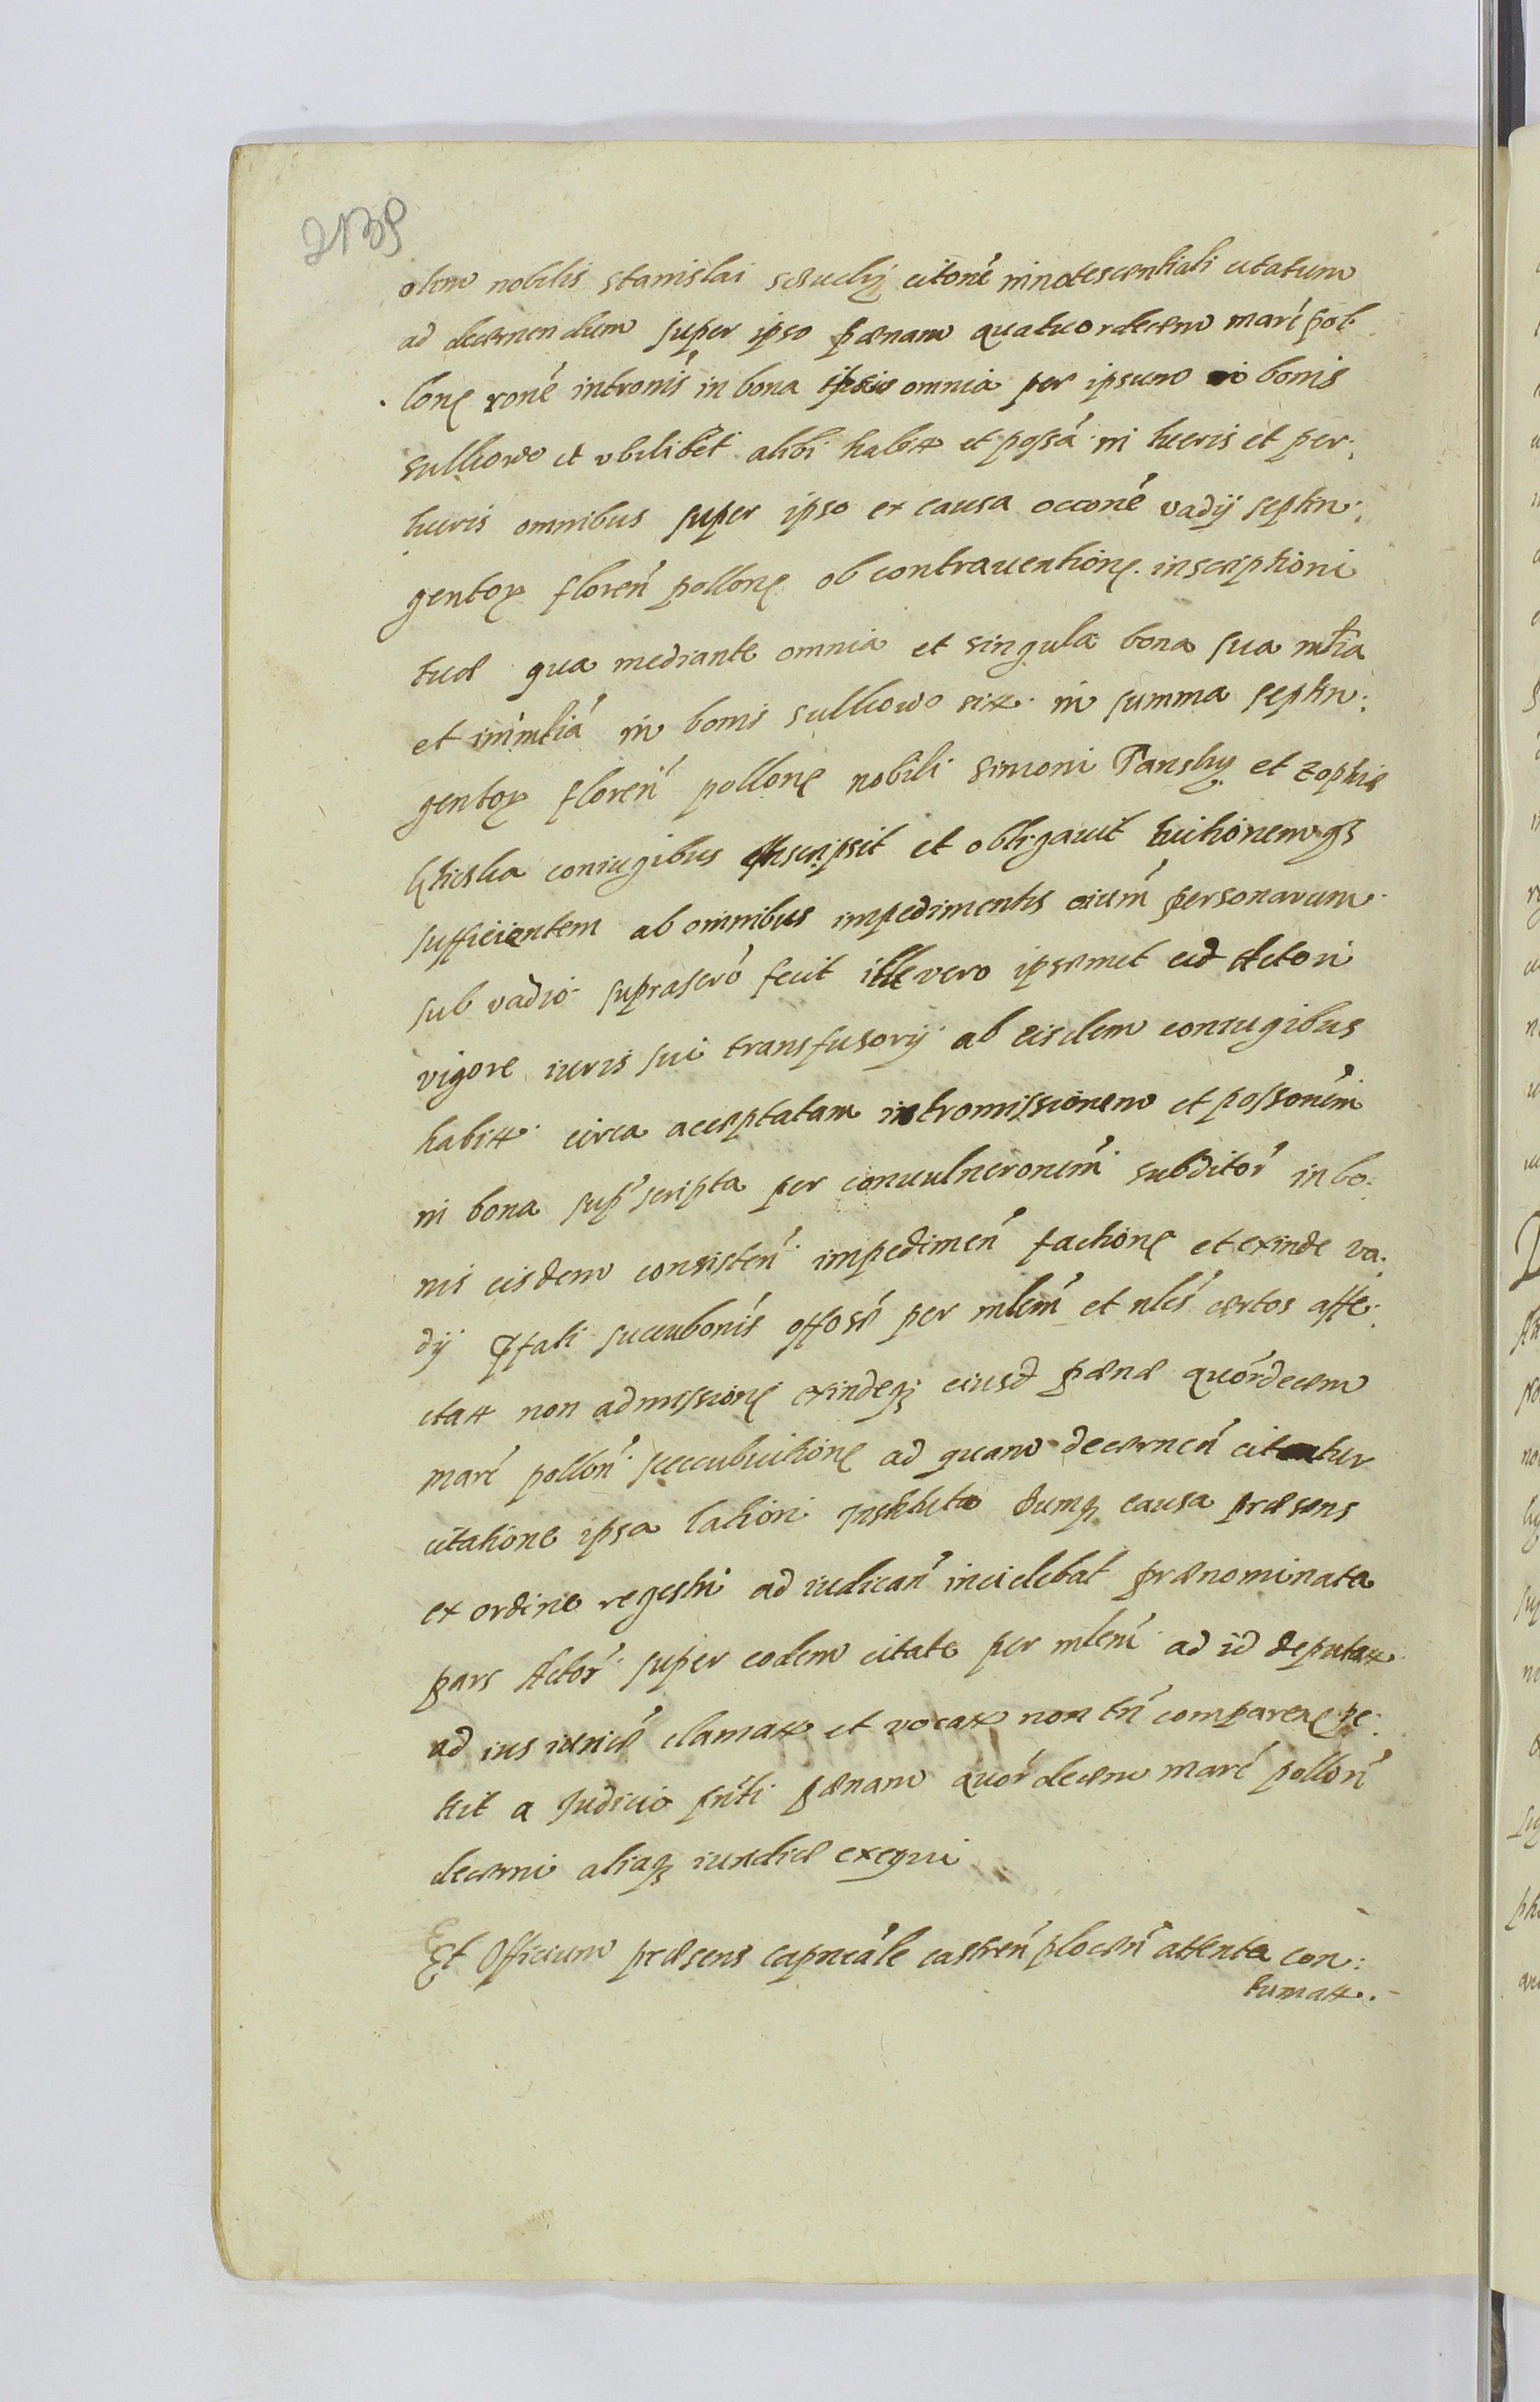 213
olim nobilis Stanislai citone innotescentiali citatum
ad decernendum super ipso pœnam quatuordecem marc pol:
lone rone intromis in bona ipsius omnia per ipsum in bonis
sulkowo et ubilibet alibi habitt et possa in lucris et per:
lucris omnibus super ipso ex causa occone vadij septin:
gentor floren pollone ob contrauentione inscriptioni
suæ qua mediante omnia et singula bona sua mtia
et inmtia in bonis sulkowo sitt in summa septin:
gentor floren pollone nobili Simoni et Zophiæ
coniugibus inscripsit et obligauit tuitionemqз
sufficientem ab omnibus impedimentis oium personarum
sub vadio suprascro fecit ille vero ipsemet eid Actori
vigore iuris sui transfusorij ab eisdem coniugibus
habitt circa acceptatam intromissionem et possonem
in bona supscripta per conuulneronem subditor in bo:
nis eisdem consisten impedimen factione et exinde va:
dij succubonis offose per mlem et nles certos affe:
ctatt non admissione exindeqз eiusd pœnæ quordecem
marc pollon succubuitione ad quam decernen citatur
citatione ipsa latiori Instituta dumqз causa præsens
ex ordine regestri ad iudican incidebat prænominata
pars Actor super eodem citato per mlem ad id deputatt
ad ius iurice clamatt et vocatt non tn comparene pe:
tiit a Judicio pnti pœnam quordecem marc pollon
decerni aliaqз iuridice exequi
Et Officium præsens capneale castren plocen attenta con:
tumatt.